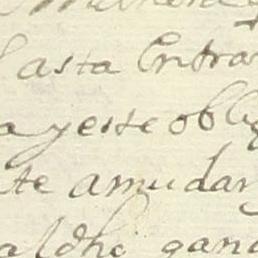 asta Entra
a y este obli
te a mudar
al dho gana